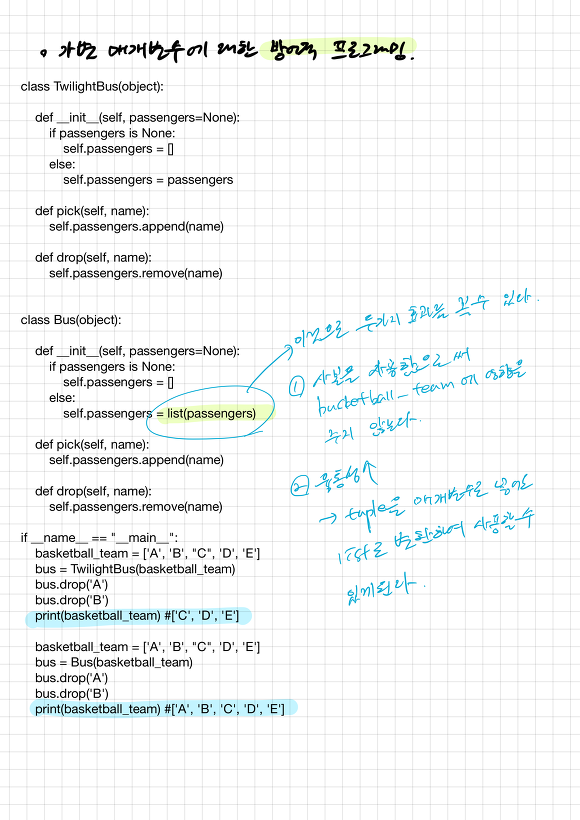 • 가변 매개변수에 대한 방어적 프로그래밍.
class TwilightBus(object):
def __init__(self, passengers=None):
if passengers is None:
self.passengers = []
else:
self.passengers = passengers
def pick(self, name):
self.passengers.append(name)
def drop(self, name):
self.passengers.remove(name)
class Bus(object):
def __init__(self, passengers=None):
if passengers is None:
self.passengers = []
else:
self.passengers = list(passengers)
def pick(self, name):
self.passengers.append(name)
def drop(self, name):
self.passengers.remove(name)
→ 이것으로 두가지 효과를 볼 수 있다.
① 사본을 사용함으로써
bucketball_team에 영향을
주지 않는다.
② 융통성↑
→ tuple을 매개변수로 넣어도
list로 변환하여 사용할 수
있게된다.
if __name__ == "__main__":
basketball_team = ['A', 'B', "C", 'D', 'E']
bus = TwilightBus(basketball_team)
bus.drop('A')
bus.drop('B')
print(basketball_team) #['C', 'D', 'E']
basketball_team = ['A', 'B', "C", 'D', 'E']
bus = Bus(basketball_team)
bus.drop('A')
bus.drop('B')
print(basketball_team) #['A', 'B', 'C', 'D', 'E']